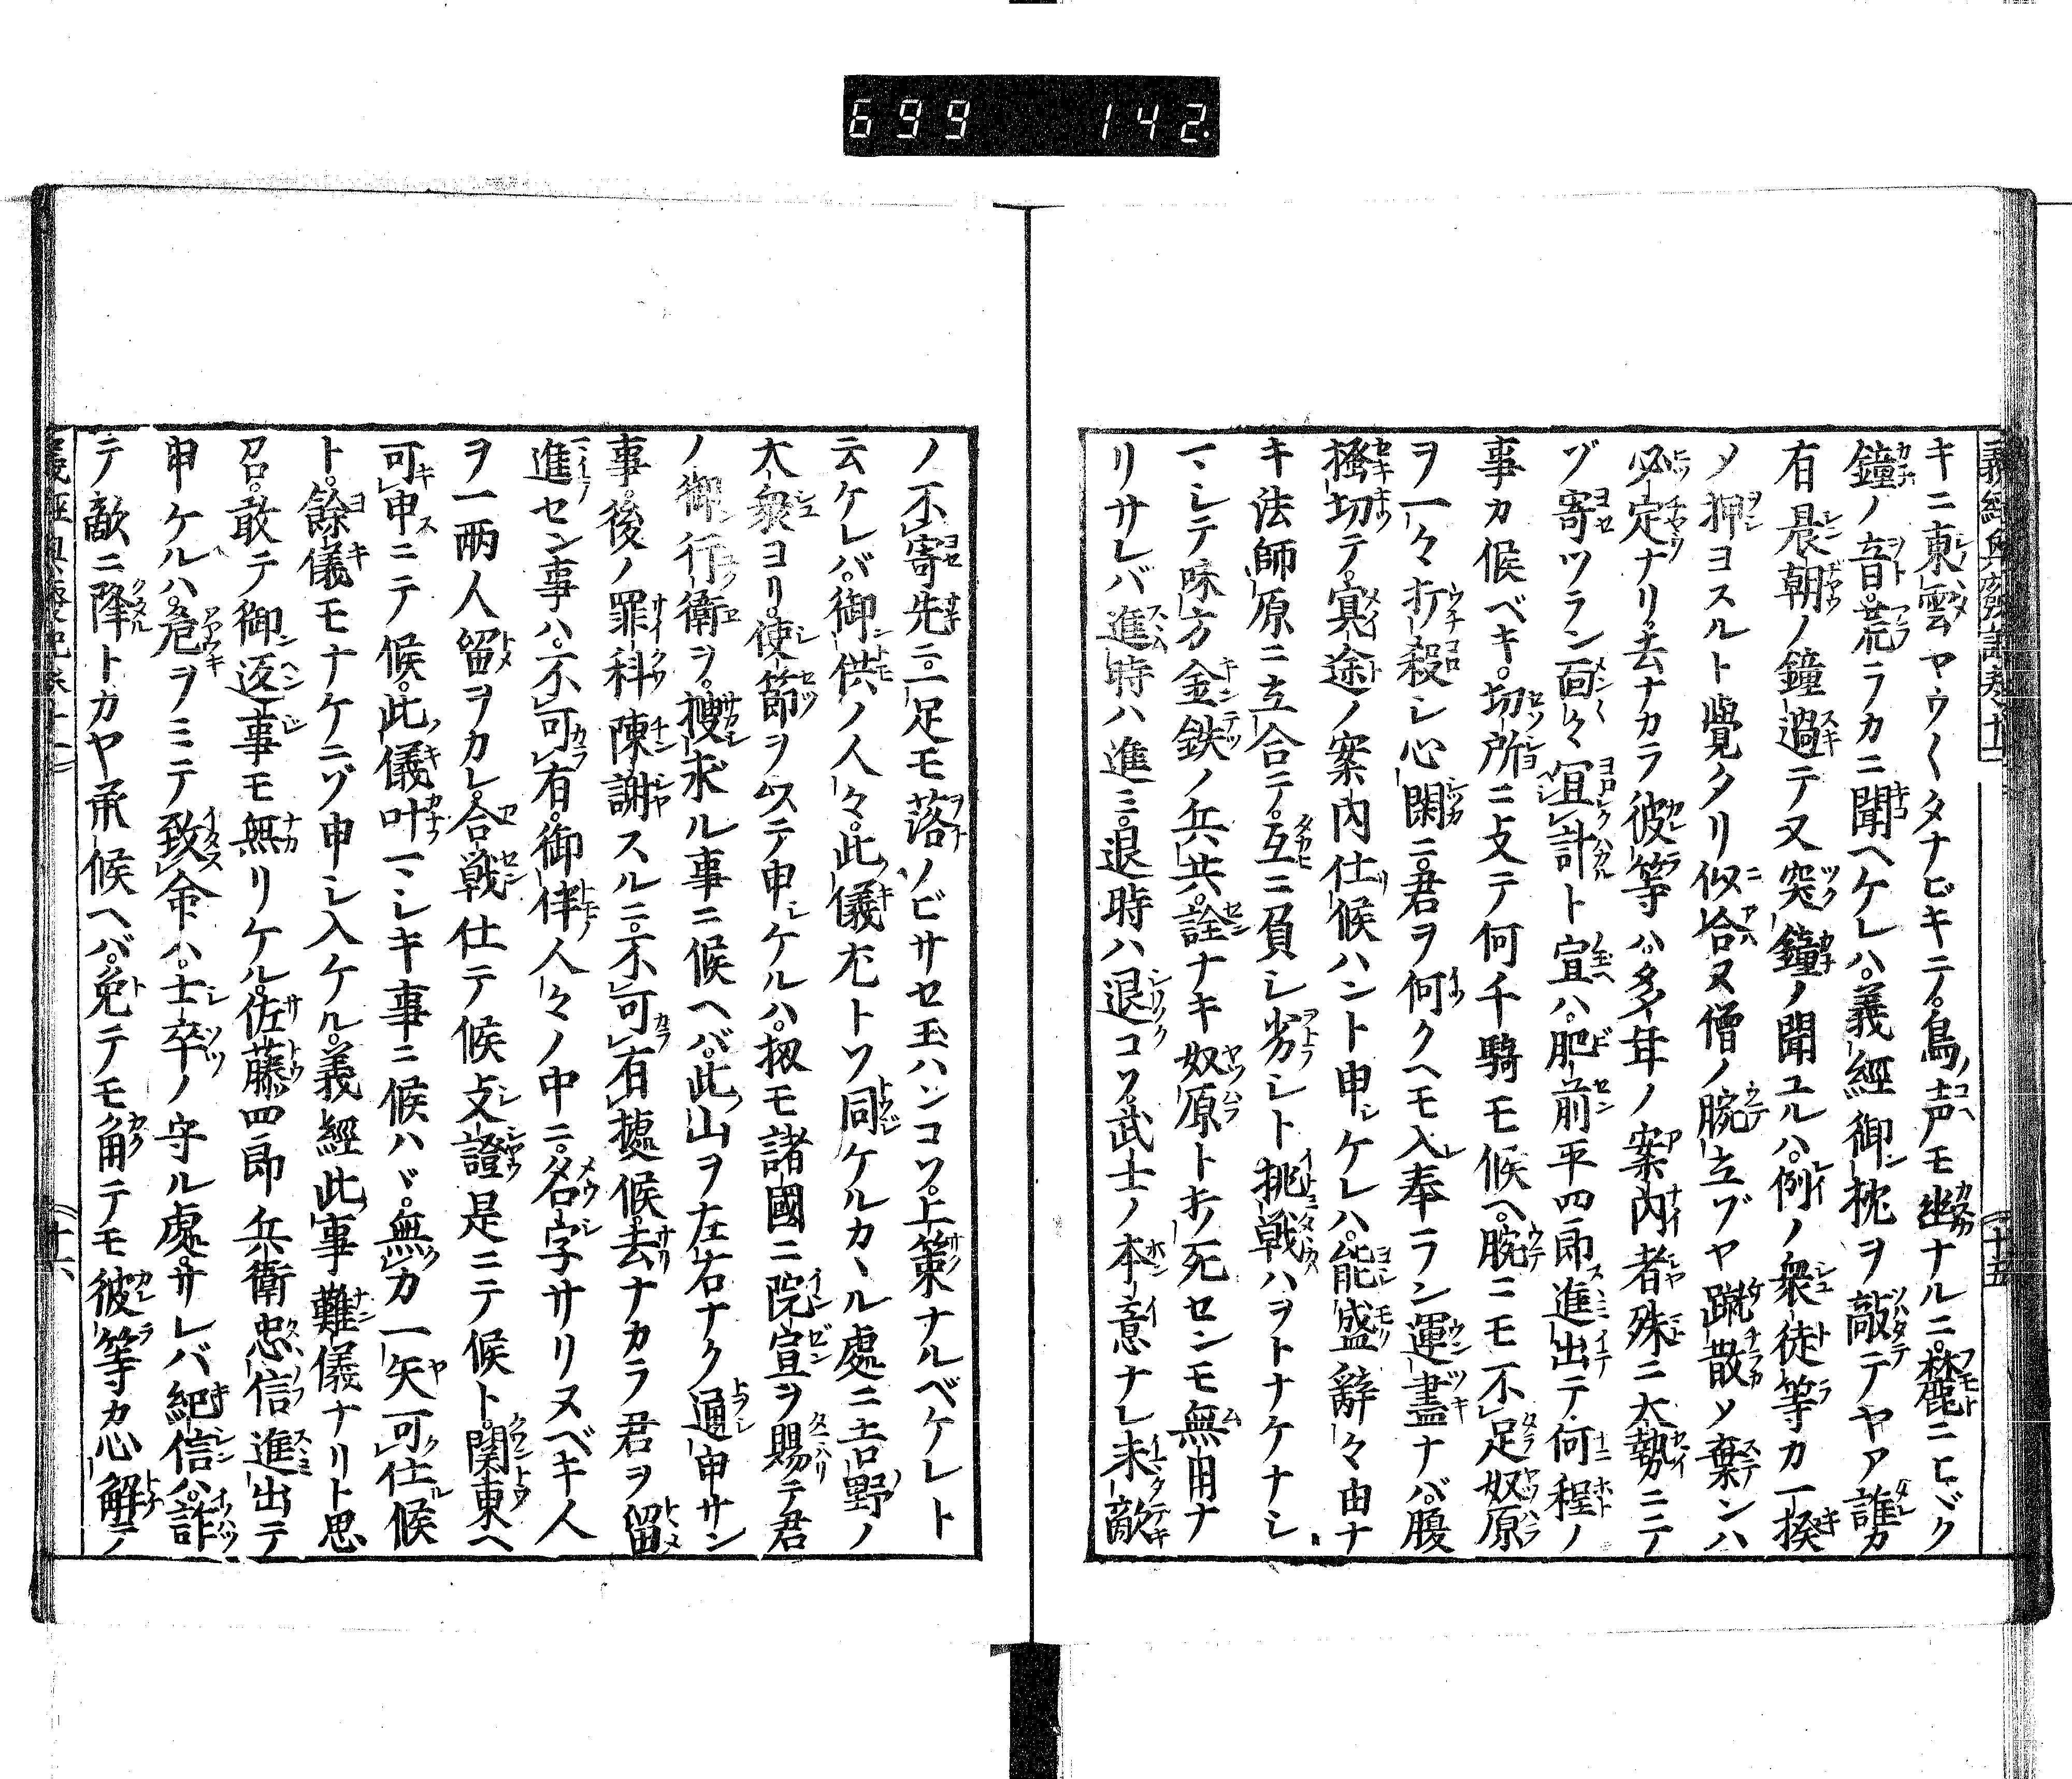 699 142.
キニ東雲ヤウ〱タナビキテ。鳥声モ幽ナルニ。麓ニヒヾク
鐘ノ音。荒ラカニ聞ヘケレハ。義經御枕ヲ敧テヤア誰カ
有晨朝ノ鐘過テ又突鐘ノ聞ユルハ。例ノ衆徒等カ一揆
メ押ヨスルト覺タリ似合ヌ僧ノ腕立ヅヤ蹴散ソ棄ンハ
必定ナリ。去ナカラ彼等ハ。多年ノ案内者殊ニ大勢ニテ
ヅ寄ツラン面々宜計ト宣ハ。肥前平四郎進出テ。何程ノ
事カ候ベキ。切所ニ攴テ何千騎モ候ヘ。腕ニモ不足奴原
ヲ一々打殺シ心閑ニ。君ヲ何クヘモ入奉ラン運盡ナバ。腹
掻切テ。冥途ノ案内仕候ハント申ケレハ。能盛辞々由ナ
キ法師原ニ立合テ。互ニ負シ劣シト挑戦ハヲトナケナシ
マシテ味方金鉄ノ兵共。詮ナキ奴原ト死センモ無用ナ
リサレバ進時ハ進ミ。退時ハ退コソ。武士ノ本意ナレ未敵
十五
ノ不寄先ニ。一足モ落ノビサセ玉ハンコソ。上策ナルベケレト
云ケレバ。御供ノ人々。此儀尤トソ同ケルカヽル處ニ吉野ノ
大衆ヨリ。使節ヲ以テ申ケルハ。扨モ諸國ニ院宣ヲ賜テ君
ノ御行衛ヲ。搜求ル事ニ候ヘバ。此山ヲ左右ナク通申サン
事。後ノ罪科陳謝スルニ。不可有據候。去ナカラ君ヲ留
進セン事ハ。不可有。御伴人々ノ中ニ。名字サリヌベキ人
ヲ一両人留ヲカレ。合戦仕テ候攴證是ニテ候ト。関東ヘ
可申ニテ候。此儀叶マシキ事ニ候ハヾ。無力一矢可仕候
ト。餘儀モナケニヅ申シ入ケル。義經此事難儀ナリト思
召。敢テ御返事モ無リケル。佐藤四郎兵衛忠信進出テ
申ケルハ。危ヲミテ致命ハ。士卒ノ守ル處。サレバ紀信ハ。詐
テ敵ニ降トカヤ承候ヘバ。免テモ角テモ彼等カ心解テ
十六